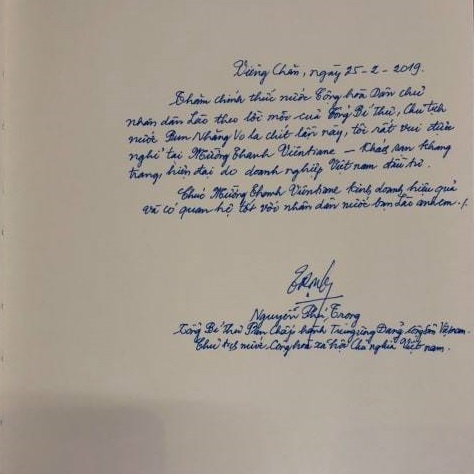 Viêng Chăn, ngày 25-2-2019.
Thăm chính thức nước Cộng hoà Dân chủ
nhân dân Lào theo lời mời của Tổng Bí thư, Chủ tịch
nước Bun Nhăng Vo la chít lần này, tôi rất vui được
nghỉ tại Mường Thanh Vientiane – Khách sạn khang
trang, hiện đại do doanh nghiệp Việt Nam đầu tư.
Chúc Mường Thanh Vientiane kinh doanh hiệu quả
và có quan hệ tốt với nhân dân nước bạn Lào anh em ./.
Trọng
Nguyễn Phú Trọng
Tổng Bí thư Ban Chấp hành Trung ương Đảng Cộng sản Việt Nam.
Chủ tịch nước Cộng hoà xã hội Chủ nghĩa Việt Nam.